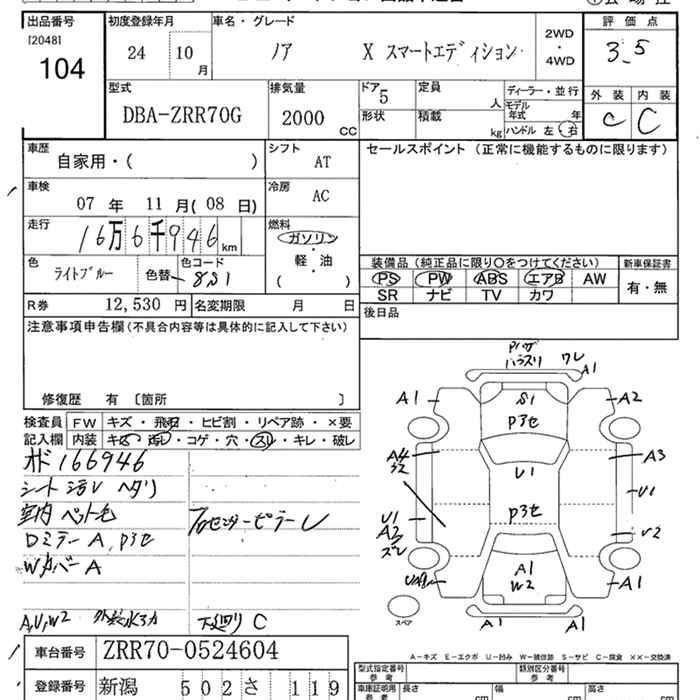 出品番号
[2048]
104
初度登録年月
24 10 月
車名・グレード
ノア X スマートエディション
2WD
・
4WD
評価点
3.5
型式
DBA-ZRR70G
排気量
2000 CC
ドア
5
形状
定員
人
積載
kg
ディーラー・並行
モデル
年式 年
ハンドル 左 右
外装 内装
C C
車歴
自家用・( )
シフト
AT
セールスポイント (正常に機能するものに限ります)
車検
07 年 11 月( 08 日)
冷房
AC
走行
16万6千946 km
燃料
ガソリン
・
軽・油
( )
色
ライトブルー
色替
色コード
8S1
装備品 (純正品に限り〇をつけてください)
新車保証書
PS PW ABS エアB AW
SR ナビ TV カワ
有・無
R券 12,530 円
名変期限 月 日
後日品
注意事項申告欄(不具合内容等は具体的に記入して下さい)
修復歴 有 〔箇所 〕
検査員
記入欄
FW キズ・飛石・ヒビ割・リペア跡・×要
内装 キズ・汚レ・コゲ・穴・スレ・キレ・破レ
オド 166946
シート汚レ ヘタリ
室内 ペット毛
ロミラー A, P3セ
Wカバー A
A,U,W2
下廻り C
A1
A1
A2
S1
P3セ
A4
A3
U1
U1
P3セ
U1
A3
U2
A1
W2
A1
A1
A1
スペア
A-キズ E-エクボ U-凹み W-補修跡 S-サビ C-腐食 ××-交換済
車台番号 ZRR70-0524604
登録番号 新潟 502 さ 119
型式指定番号
参考
類別区分番号
参考
車庫証明用
参考
長さ cm
幅 cm
高さ cm